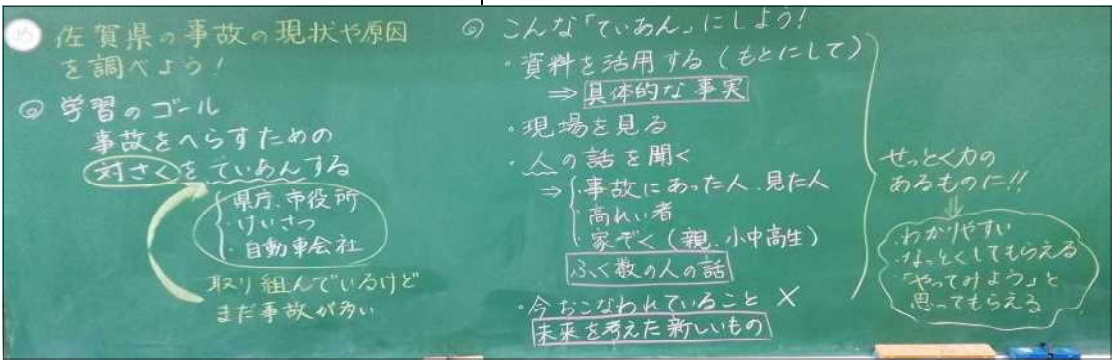 め 佐賀県の事故の現状や原因
を調べよう！
◎ 学習のゴール
事故をへらすための
対さくをていあんする
・県庁、市役所
・けいさつ
・自動車会社
取り組んでいるけど
まだ事故が多い
◎ こんな「ていあん」にしよう！
・資料を活用する（もとにして）
⇒ 具体的な事実
・現場を見る
・人の話を聞く
⇒ ・事故にあった人、見た人
・高れい者
・家ぞく（親、小中高生）
ふく数の人の話
・今おこなわれていること ×
未来を考えた新しいもの
せっとく力の
あるものに!!
⇓
・わかりやすい
・なっとくしてもらえる
・「やってみよう」と
思ってもらえる